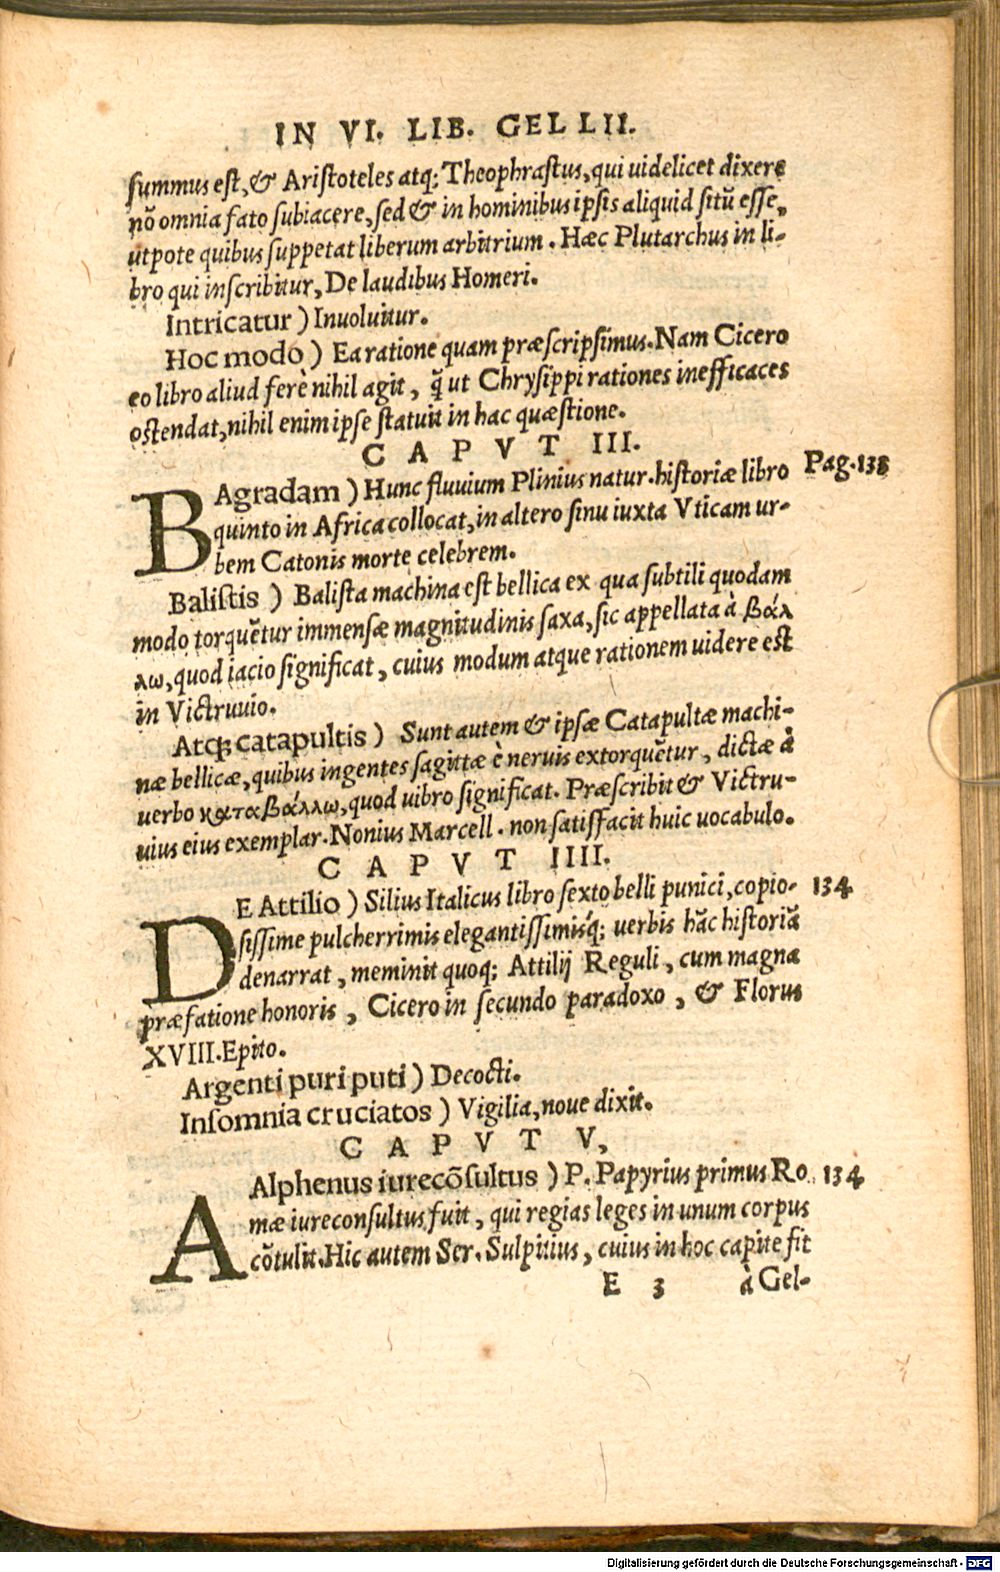 IN VI. LIB. GELLII.
summus est, & Aristoteles atq; Theophrastus, qui uidelicet dixere
nõ omnia fato subiacere, sed & in hominibus ipsis aliquid sitũ esse,
utpote quibus suppetat liberum arbitrium. Hæc Plutarchus in li-
bro qui inscribitur, De laudibus Homeri.
Intricatur ) Inuoluitur.
Hoc modo ) Ea ratione quam præscripsimus. Nam Cicero
eo libro aliud ferè nihil agit, q̃ ut Chrysippi rationes inefficaces
ostendat, nihil enim ipse statuit in hac quæstione.
CAPVT III.
BAgradam ) Hunc fluuium Plinius natur. historiæ libro Pag. 133
quinto in Africa collocat, in altero sinu iuxta Vticam ur-
bem Catonis morte celebrem.
Balistis ) Balista machina est bellica ex qua subtili quodam
modo torquẽtur immensæ magnitudinis saxa, sic appellata à βάλ
λω, quod iacio significat, cuius modum atque rationem uidere est
in Victruuio.
Atq; catapultis ) Sunt autem & ipsæ Catapultæ machi-
næ bellicæ, quibus ingentes sagittæ è neruis extorquẽtur, dictæ à
uerbo καταβάλλω, quod uibro significat. Præscribit & Victru-
uius eius exemplar. Nonius Marcell. non satisfacit huic uocabulo.
CAPVT IIII.
DE Attilio ) Silius Italicus libro sexto belli punici, copio- 134
sissime pulcherrimis elegantissimisq́; uerbis hãc historiã
denarrat, meminit quoq; Attilij Reguli, cum magna
præfatione honoris, Cicero in secundo paradoxo, & Florus
XVIII. Epito.
Argenti puri puti ) Decocti.
Insomnia cruciatos ) Vigilia, noue dixit.
CAPVT V,
Alphenus iurecõsultus ) P. Papyrius primus Ro 134
mæ iureconsultus fuit, qui regias leges in unum corpus
cõtulit. Hic autem Ser. Sulpitius, cuius in hoc capite fit
E 3 à Gel-
Digitalisierung gefördert durch die Deutsche Forschungsgemeinschaft - DFG